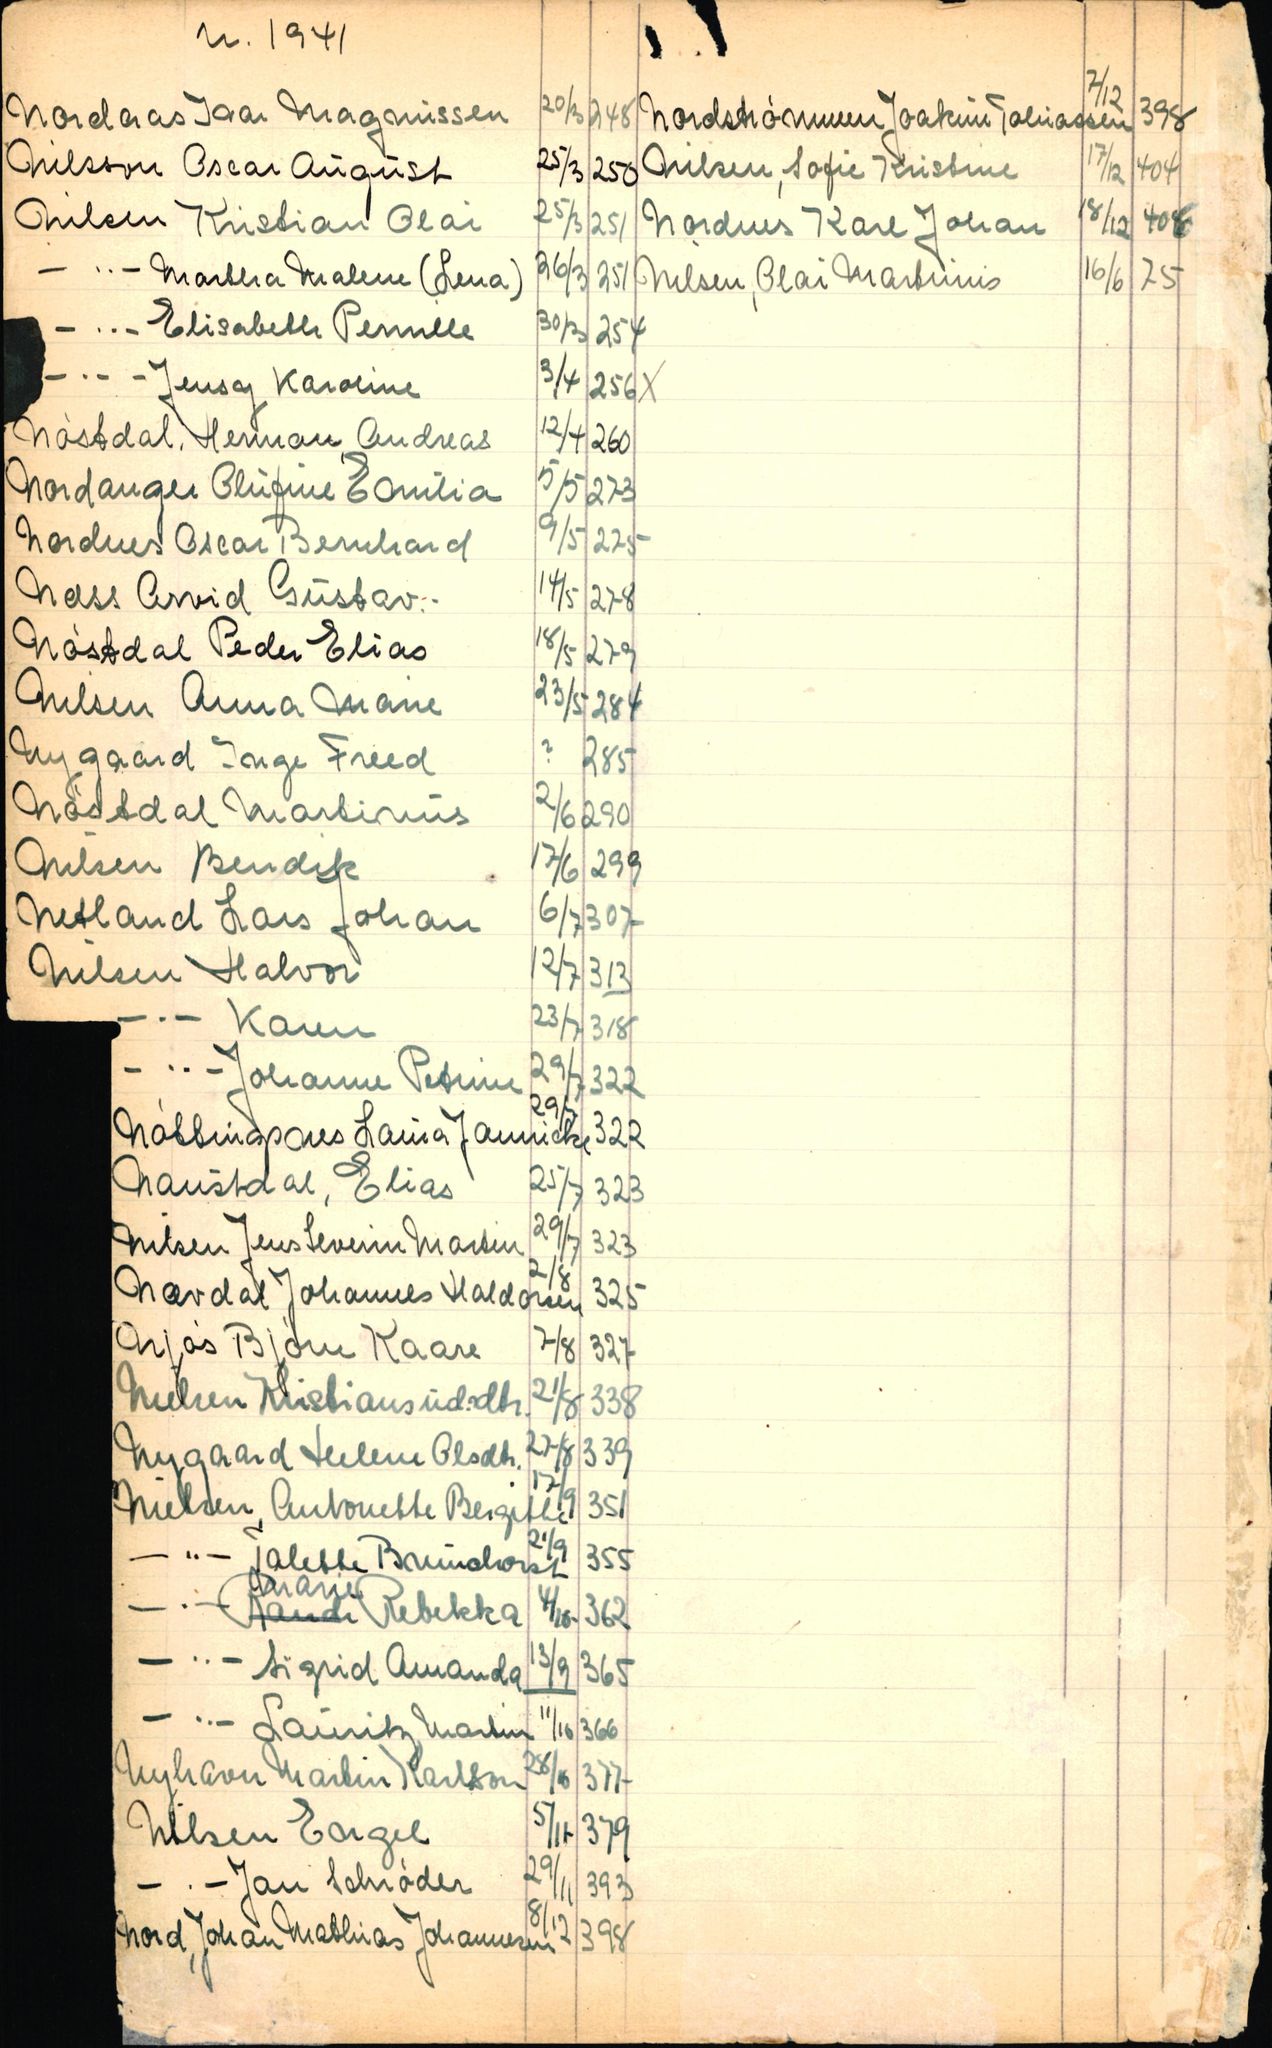 N. 1941
Nordaas Ivar Magnussen 20/3 248
Nilsson Oscar August 25/3 250
Nilsen Kristian Olai 25/3 251
— " — Martha Malene (Lena) 26/3 251
— " — Elisabeth Pernille 30/3 254
— " — Jensy Karoline 3/4 256 X
Nóstdal, Herman Andreas 12/4 260
Nordanger Olufine Emilia 5/5 273
Nordnes Oscar Bernhard 9/5 225
Ness Arvid Gustav 14/5 278
Nóstdal Peder Elias 18/5 279
Nilsen Anna Marie 23/5 284
Nygaard Inge Freed ? 285
Nóstdal Martinus 2/6 290
Nilsen Bendik 17/6 299
Netland Lars Johan 6/7 307
Nilsen Halvor 12/7 313
— " — Karen 23/7 318
— " — Johanne Petrine 29/7 322
Nóttingnes Laura Jannicke 29/7 322
Naustdal, Elias 25/7 323
Nilsen Jens Severin Martin 29/7 323
Nævdal Johannes Haldorsen 2/8 325
Njós Bjórn Kaare 7/8 327
Nielsen Kristians 21/8 338
Nygaard Helene Olsdtr. 27/8 339
Nielsen, Antonette Bergitte 17/9 351
— " — Talette Brunchorst 21/9 355
— " — Marie Randi Rebekka 4/10 362
— " — Sigrid Amanda 13/9 365
— " — Lauritz Martin 11/10 366
Nyhavn Martin Karlson 28/10 377
Nilsen Engel 5/11 379
— " — Jan Schróder 29/11 393
Nord, Johan Mathias Johannesen 8/12 398
Nordstrómmen Joakim Tobiassen 7/12 398
Nilsen, Sofie Kristine 17/12 404
Nordnes Karl Johan 18/12 406
Nilsen, Olai Martinius 16/6 75